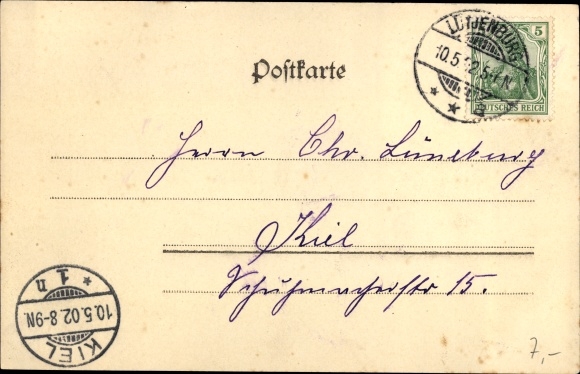 LÜTJENBURG
10.5.02.5-6N
* *
5
DEUTSCHES REICH
Postkarte
Herrn Chr. Lüneburg
Kiel
Schuhmacherstr 15.
KIEL
10.5.02.8-9N.
* 1 n
7,-